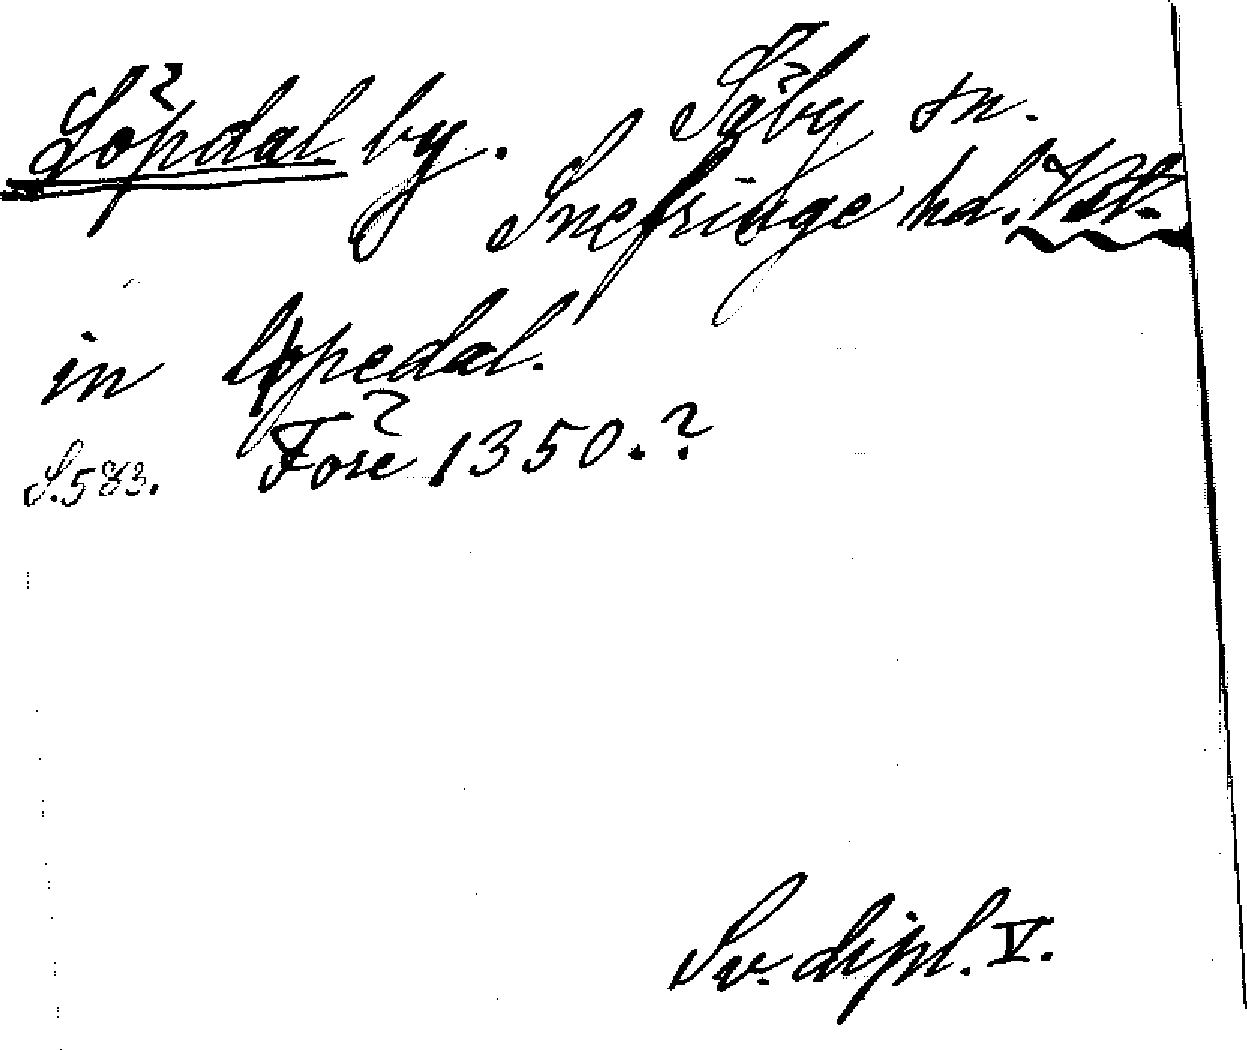 Löpdal by. Säby sn.
Snefringe hd. Vstm.
in løpedal.
Före 1350.?
S.583.
Sv. dipl. V.